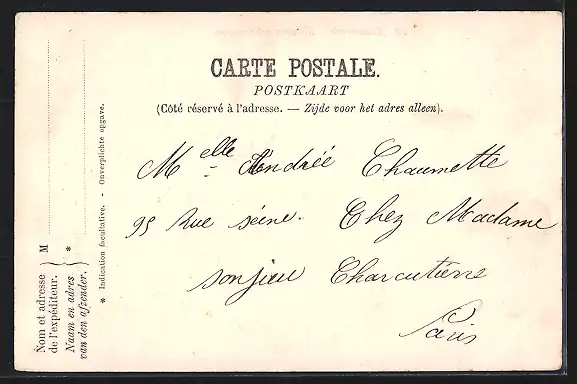 CARTE POSTALE.
POSTKAART
(Côté réservé à l'adresse. — Zijde voor het adres alleen).
Melle Andrée Chaumette
95 Rue séine. Chez Madame
Charcutière
Paris
* Indication facultative. - Onverplichte opgave.
M
*
Nom et adresse
de l'expéditeur.
Naam en adres
van den afzender.